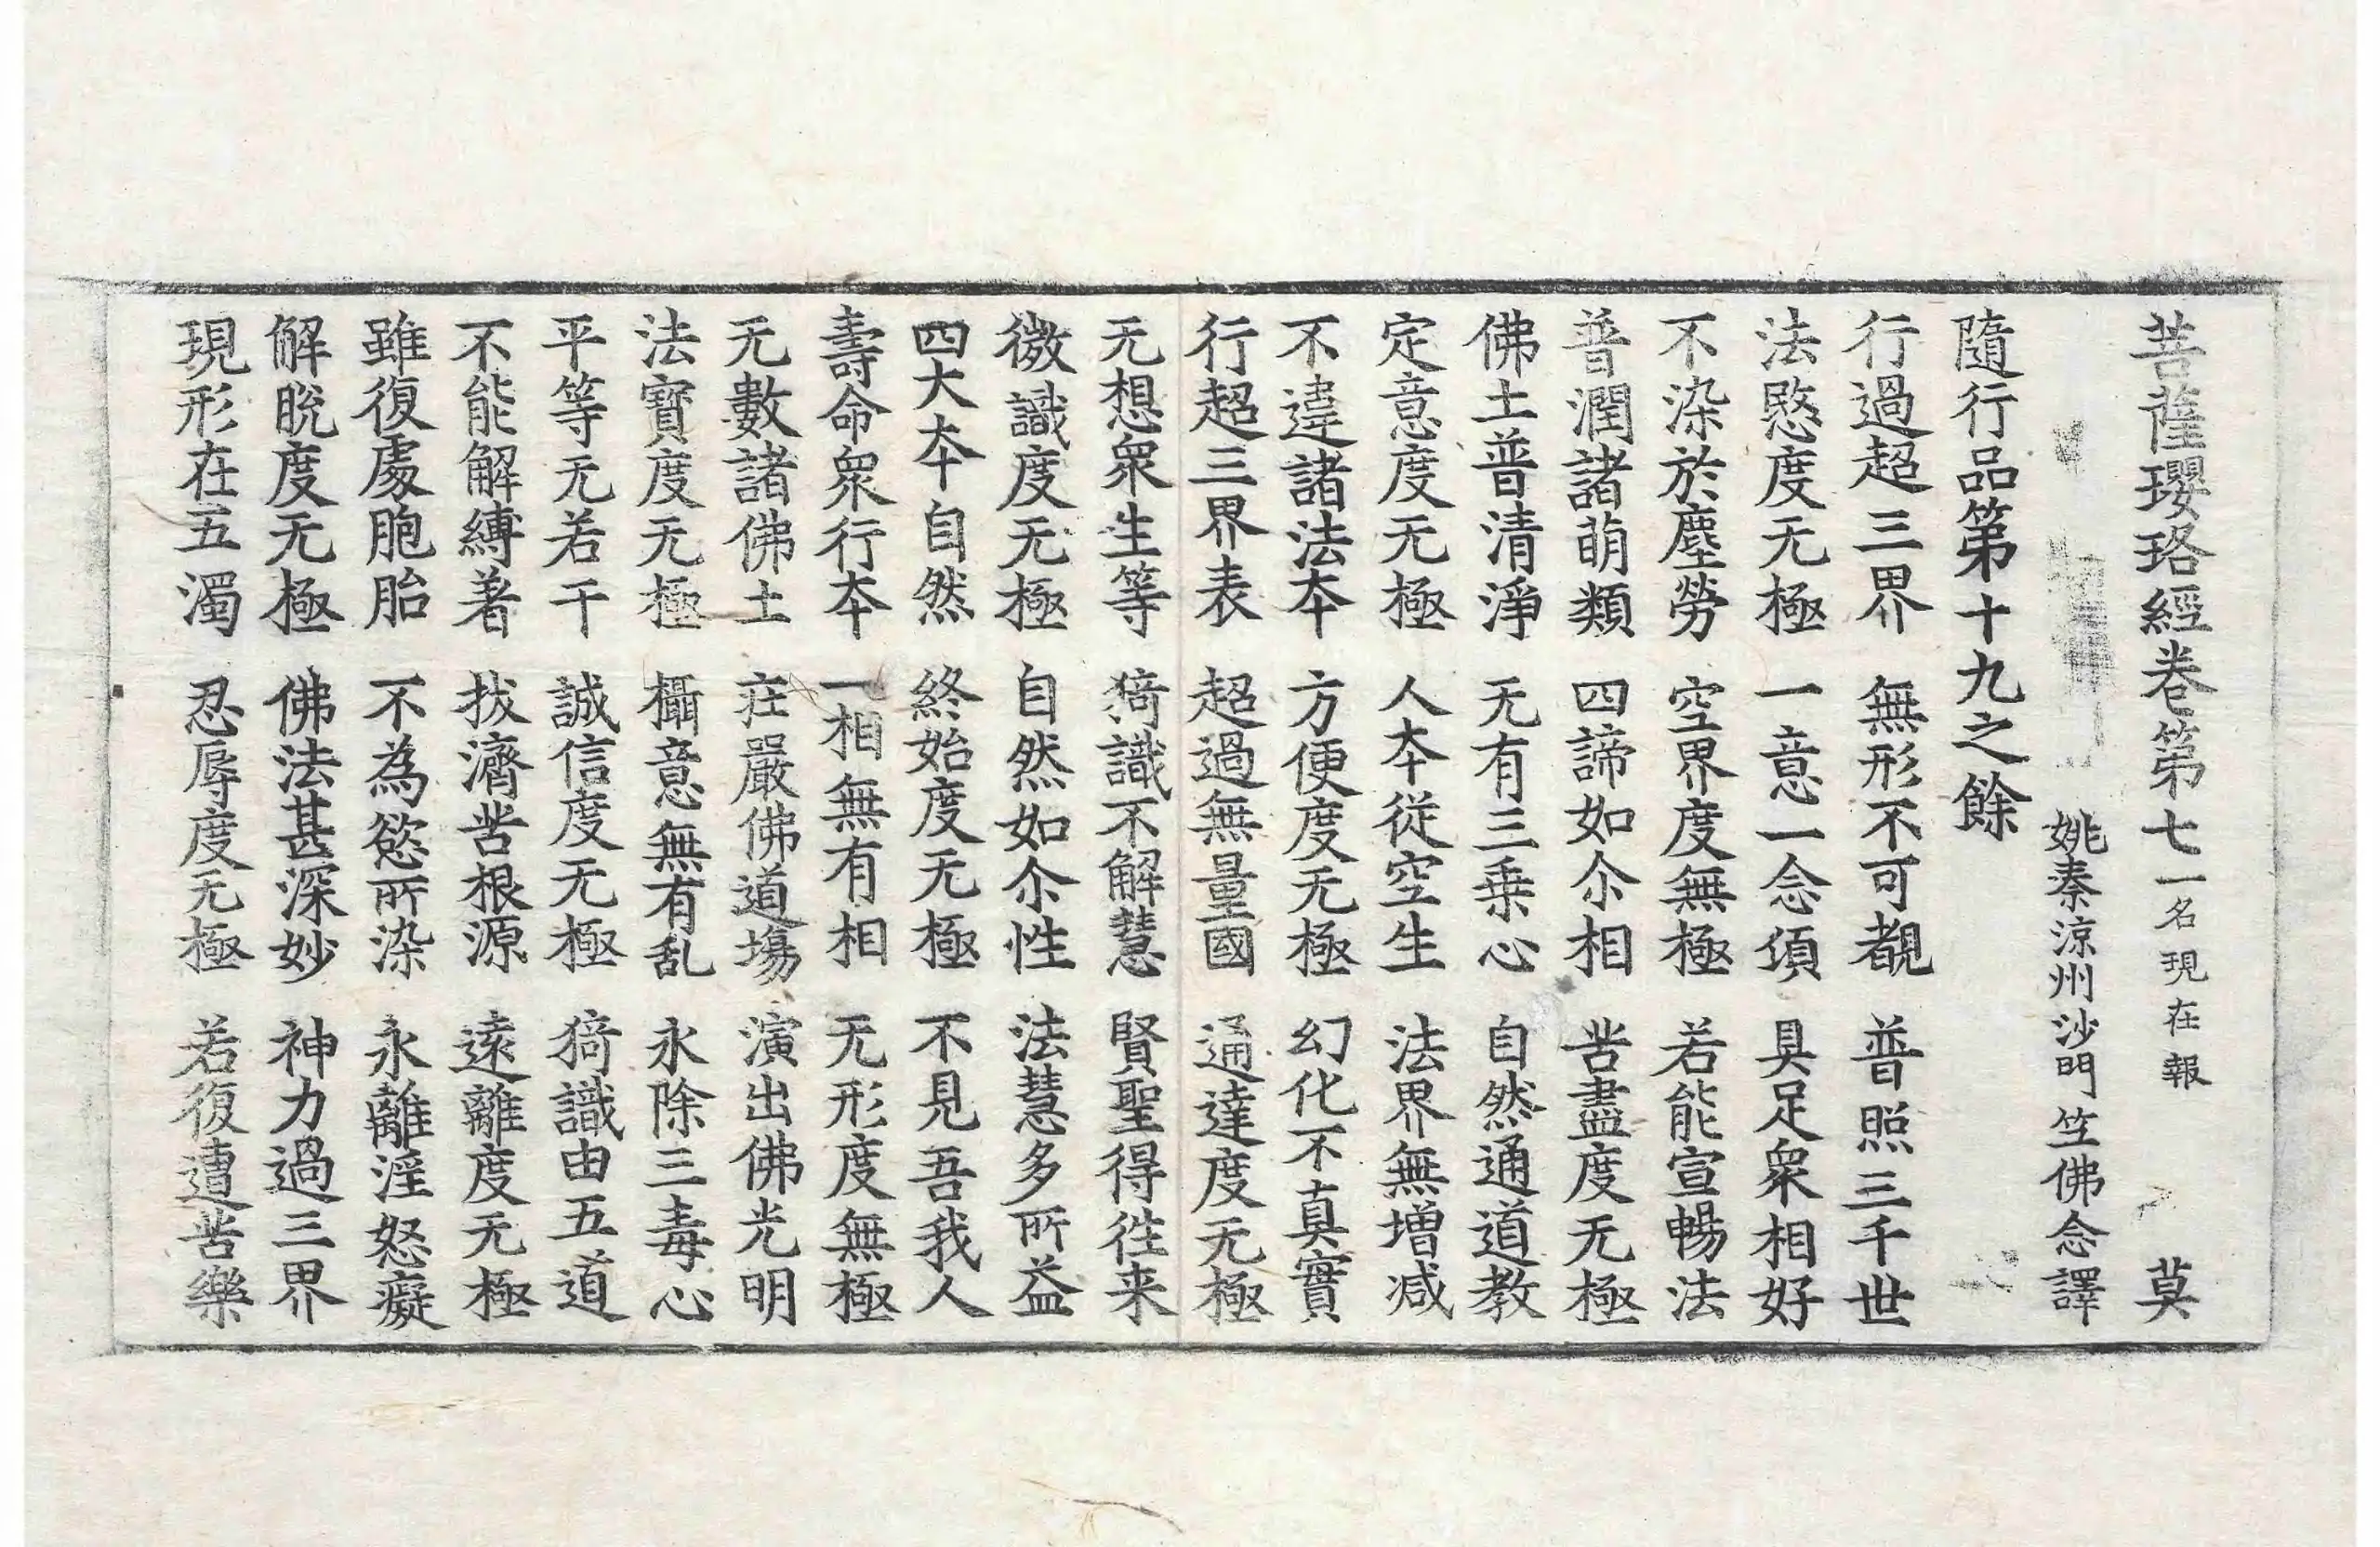 菩薩瓔珞經卷第七一名現在報 莫
姚秦涼州沙門竺佛念譯
隨行品第十九之餘
行過超三界 無形不可覩 普照三千世
法愍度无極 一意一念傾 具足衆相好
不染於塵勞 空界度無極 若能宣暢法
普潤諸萌類 四諦如尒相 苦盡度无極
佛土普清淨 无有三乗心 自然通道教
定意度无極 人夲從空生 法界無増减
不違諸法夲 方便度无極 幻化不真實
行超三界表 超過無量國 通達度无極
无想衆生等 猗識不解慧 賢聖得徃来
微識度无極 自然如尒性 法慧多所益
四大夲自然 終始度无極 不見吾我人
壽命衆行夲 一相無有相 无形度無極
无數諸佛土 莊嚴佛道場 演出佛光明
法寶度无極 攝意無有乱 永除三毒心
平等无若干 誠信度无極 猗識由五道
不能解縛著 拔濟苦根源 遠離度无極
雖復處胞胎 不為慾所染 永離淫怒癡
解脫度无極 佛法甚深妙 神力過三界
現形在五濁 忍辱度无極 若復遭苦樂